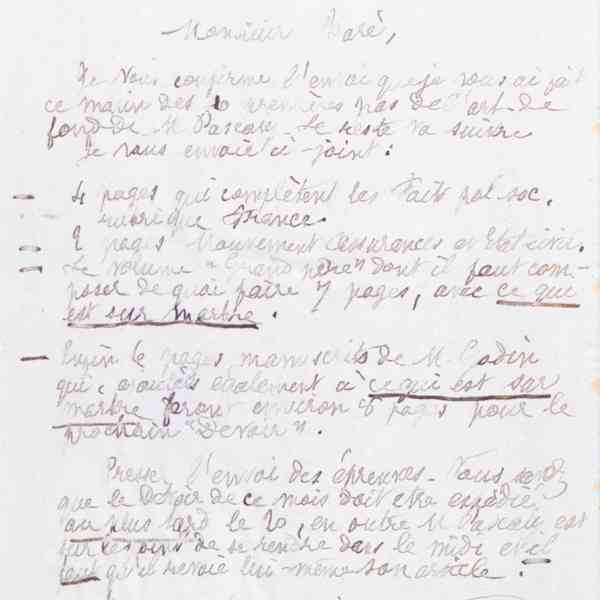 Monsieur Baré,
Je vous confirme l'envoi que je vous ai fait
ce matin des 10 premières pas de l'art. de
fond de M Pascaly. Le reste va suivre
Je vous envoie ci-joint :
4 pages qui complètent les Faits pol soc.
rubrique France.
2 pages Mouvement assurances et Etat civil.
Le volume "Grand père" dont il faut com-
poser de quoi faire 7 pages, avec ce qui
est sur marbre.
Enfin le pages manuscrits de M. Godin
qui, également à ce qui est sur
marbre feront environ 8 pages pour le
prochain "Devoir".
Pressez l'envoi des épreuves. Vous
que le Devoir de ce mois doit être expédié
au plus tard le 20, en outre M Pascaly est
sur les point de se rendre dans le midi et il
faut qu'il revoie lui-même son article.